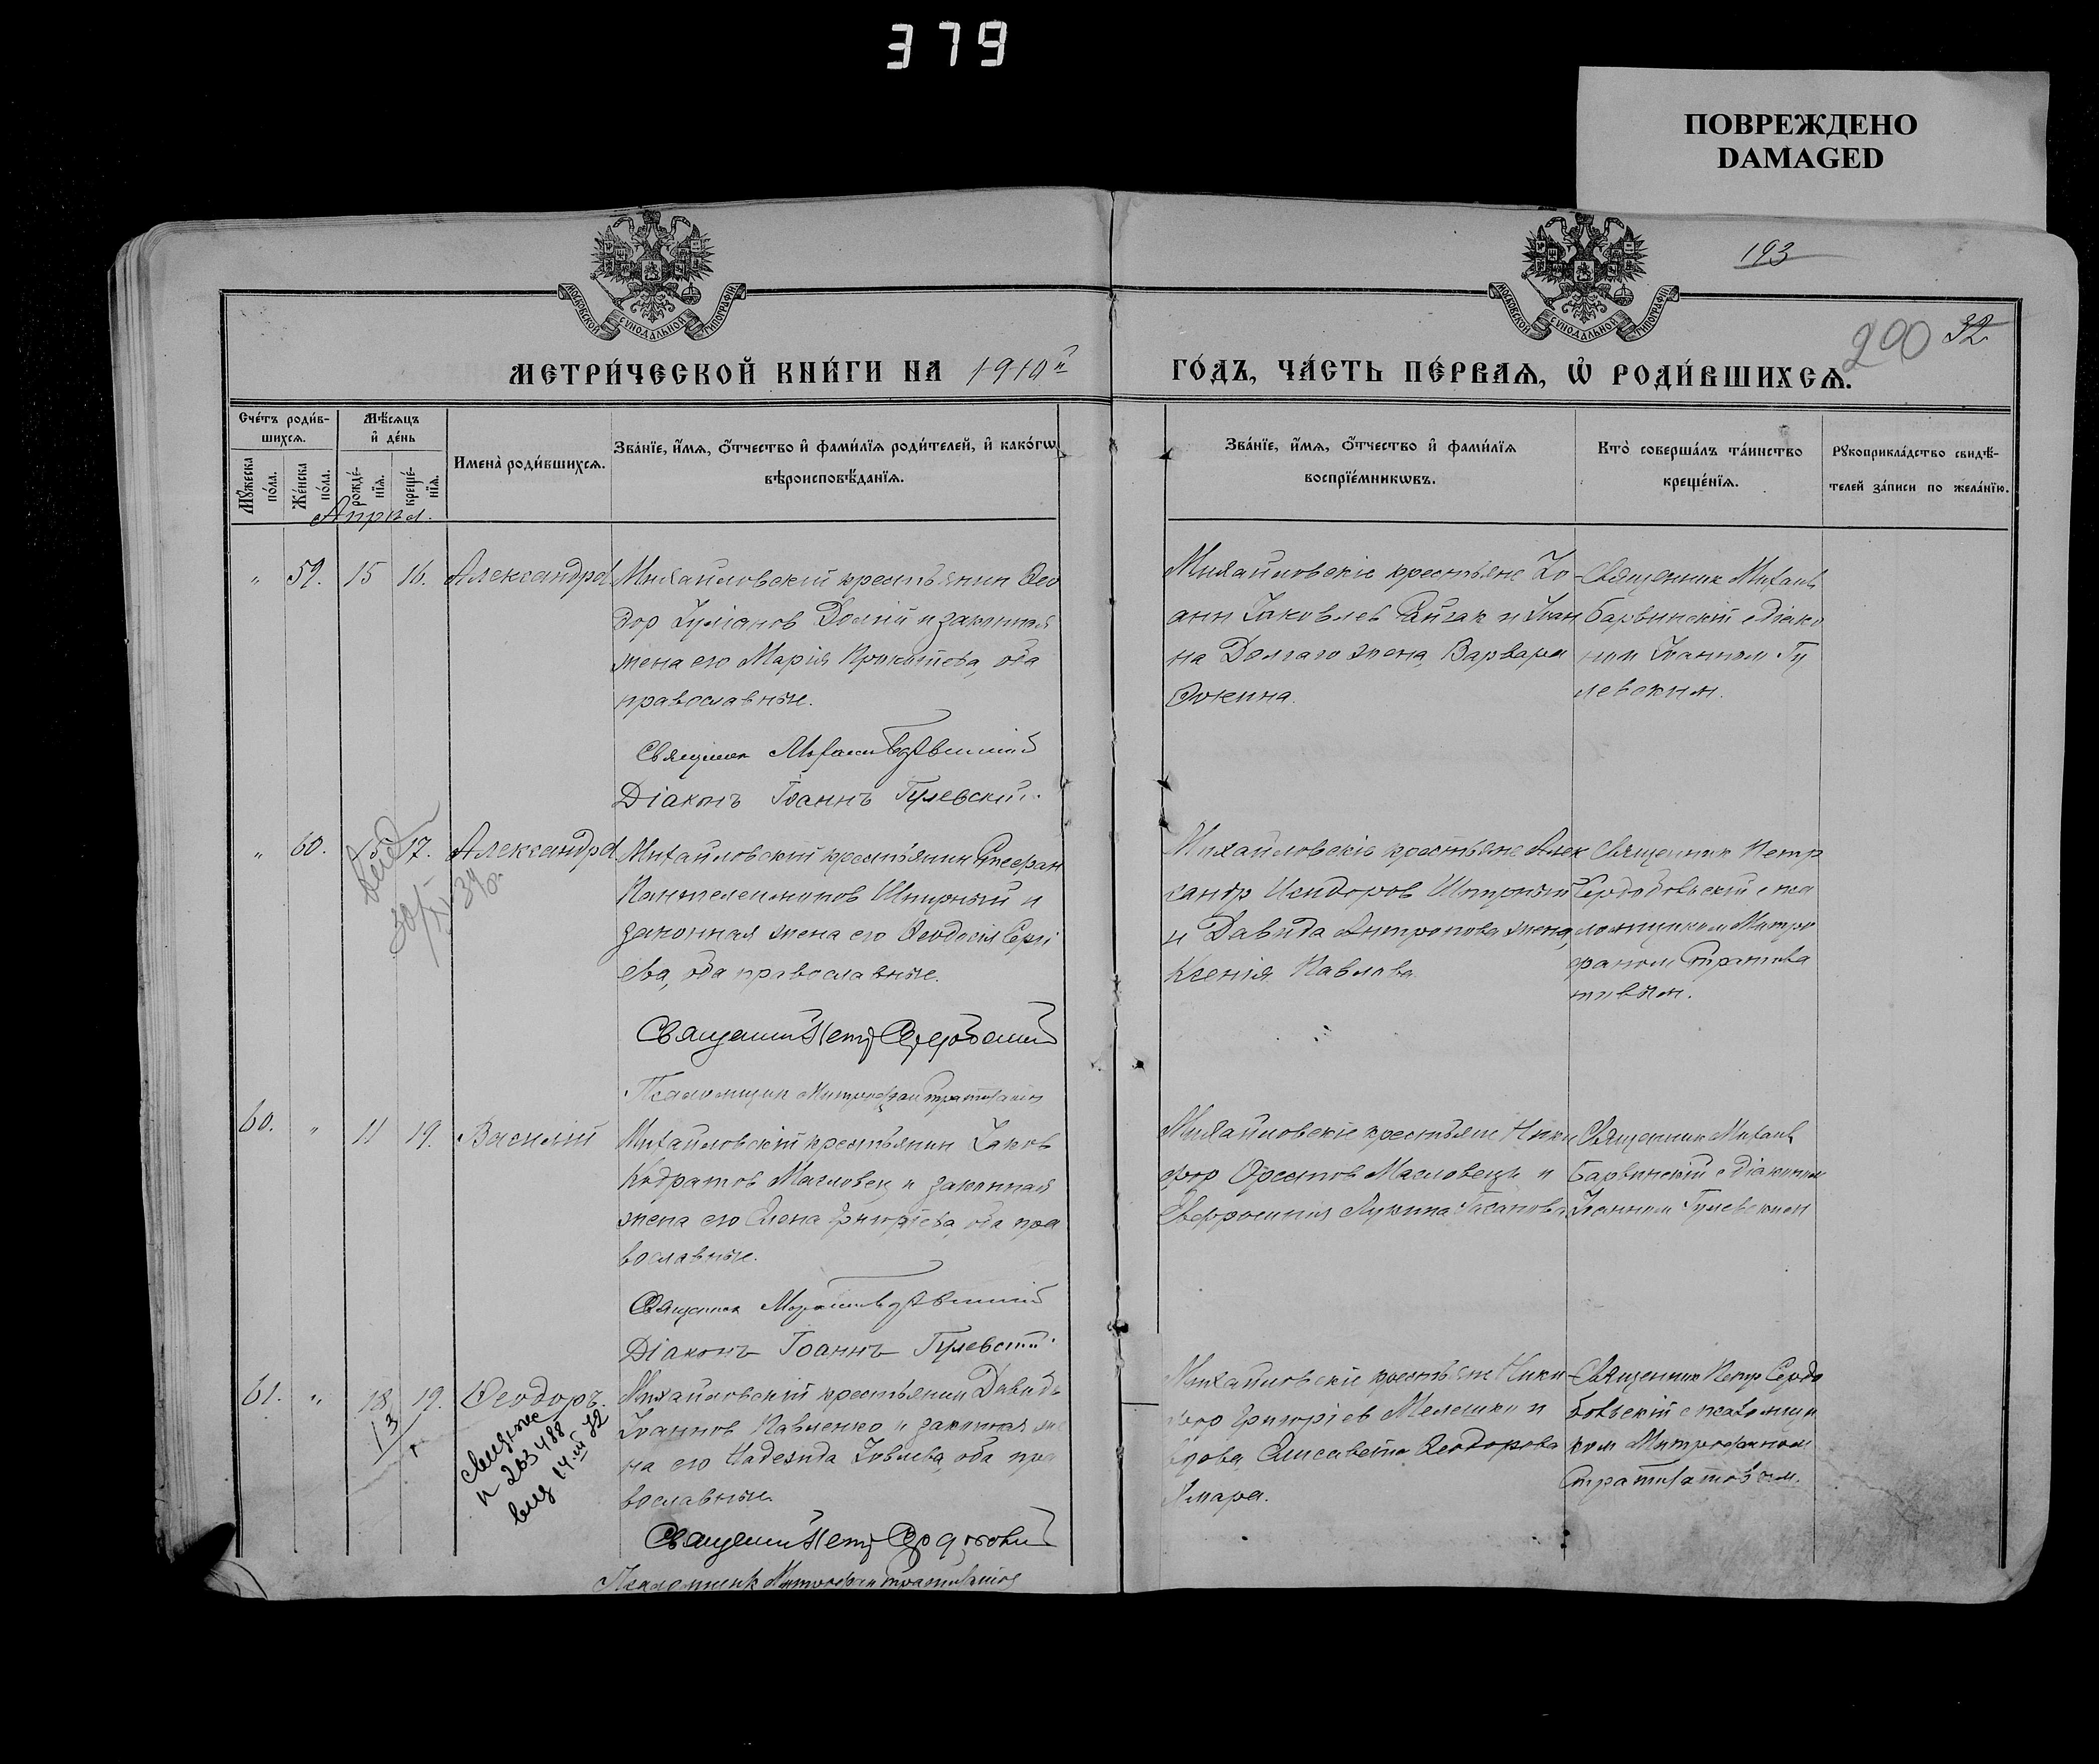 379
ПОВРЕЖДЕНО
DAMAGED
193
200 32
МОСКОВСКОЙ СѴНОДАЛЬНОЙ ТИПОГРАФІИ
МОСКОВСКОЙ СѴНОДАЛЬНОЙ ТИПОГРАФІИ
МЕТРИ́ЧЕСКОЙ КНИ́ГИ НА 1910й
ГО́ДЪ, ЧА́СТЬ ПЕ́РВАѦ, Ѡ҆ РОДИ́ВШИХСѦ.
Сче́тъ роди́в-
шихсѧ.
Мꙋ́жеска по́ла.
Же́нска по́ла.
Мѣ́сѧцъ
и҆ де́нь
рожде́-
нїѧ.
креще́-
нїѧ.
Имена̀ роди́вшихсѧ.
Зва́нїе, и҆́мѧ, ѻ҆́тчество и҆ фами́лїѧ роди́телей, и҆ како́гѡ
вѣроисповѣ́данїѧ.
Зва́нїе, и҆́мѧ, ѻ҆́тчество и҆ фами́лїѧ
воспрїе́мникѡвъ.
Кто̀ соверша́лъ та́инство
креще́нїѧ.
Рꙋкоприкла́дство свидѣ́-
телей за́писи по жела́нїю.
Апрѣл.
" 59. 15 16. Александра
Михайловскій крестьянин Ѳео
дор Іуліанов Долгій и законная
жена его Марія Прокопіева, оба
православные.
Священник Михаил Барвинский
Діаконъ Іоаннъ Гулевский.
Михайловскіе крестьяне Іо-
анн Іаковлев и Іоан
на Долгаго жена Варвара
Фокина.
Священник Михаил
Барвинскій с діако
ном Іоанном Гу
левским.
" 60. 15 17. Александра
Михайловскій крестьянин Стефан
Пантелеимонов Штирный и
законная жена его Ѳеодосія Сергі
ева, оба православные.
Священник Петр Сердобольский
Псаломщик Митрофан Стратилатов
Михайловскіе крестьяне Алек
сандр Исидоров Штирный
и Давида Антропова жена,
Ксенія Павлова
Священник Петр
Сердобольскій с пса
ломщиком Митро
фаном Стратила
товым.
60. " 11 19. Василій
Михайловскій крестьянин Іаков
Кодратов Масловец и законная
жена его Елена Григоріева, оба пра
вославные.
Священник Михаил Барвинский
Діаконъ Іоаннъ Гулевский.
Михайловскіе крестьяне Ники
фор Орестов Масловец и
Евфросинія Лукина
Священник Михаил
Барвинскій с діаконом
Іоанном Гулевским
61. " 18 19. Ѳеодоръ.
13
Михайловскій крестьянин Давид
Іоаннов Павленко и законная же
на его Надежда Іовлева, оба пра
вославные.
Священник Петр Сердобольский
Псаломщик Митрофан Стратилатов
Михайловскіе крестьяне Ники
фор Григоріев Мелешко и
вдова Елисавета Ѳеодорова
Священник Петр Сердо
больскій с псаломщи
ком Митрофаном
Стратилатовым.